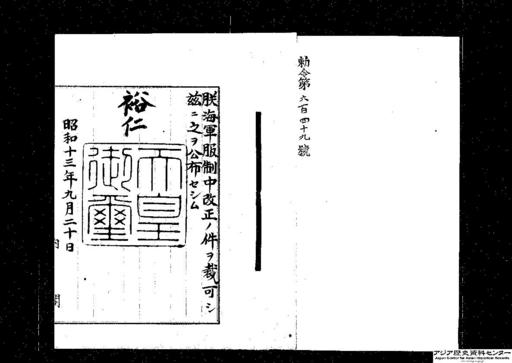 勅令第六百四十九號
朕海軍服制中改正ノ件ヲ裁可シ
茲ニ之ヲ公布セシム
裕仁
天皇
御璽
昭和十三年九月二十日
内閣
アジア歴史資料センター
Japan Center for Asian Historical Records